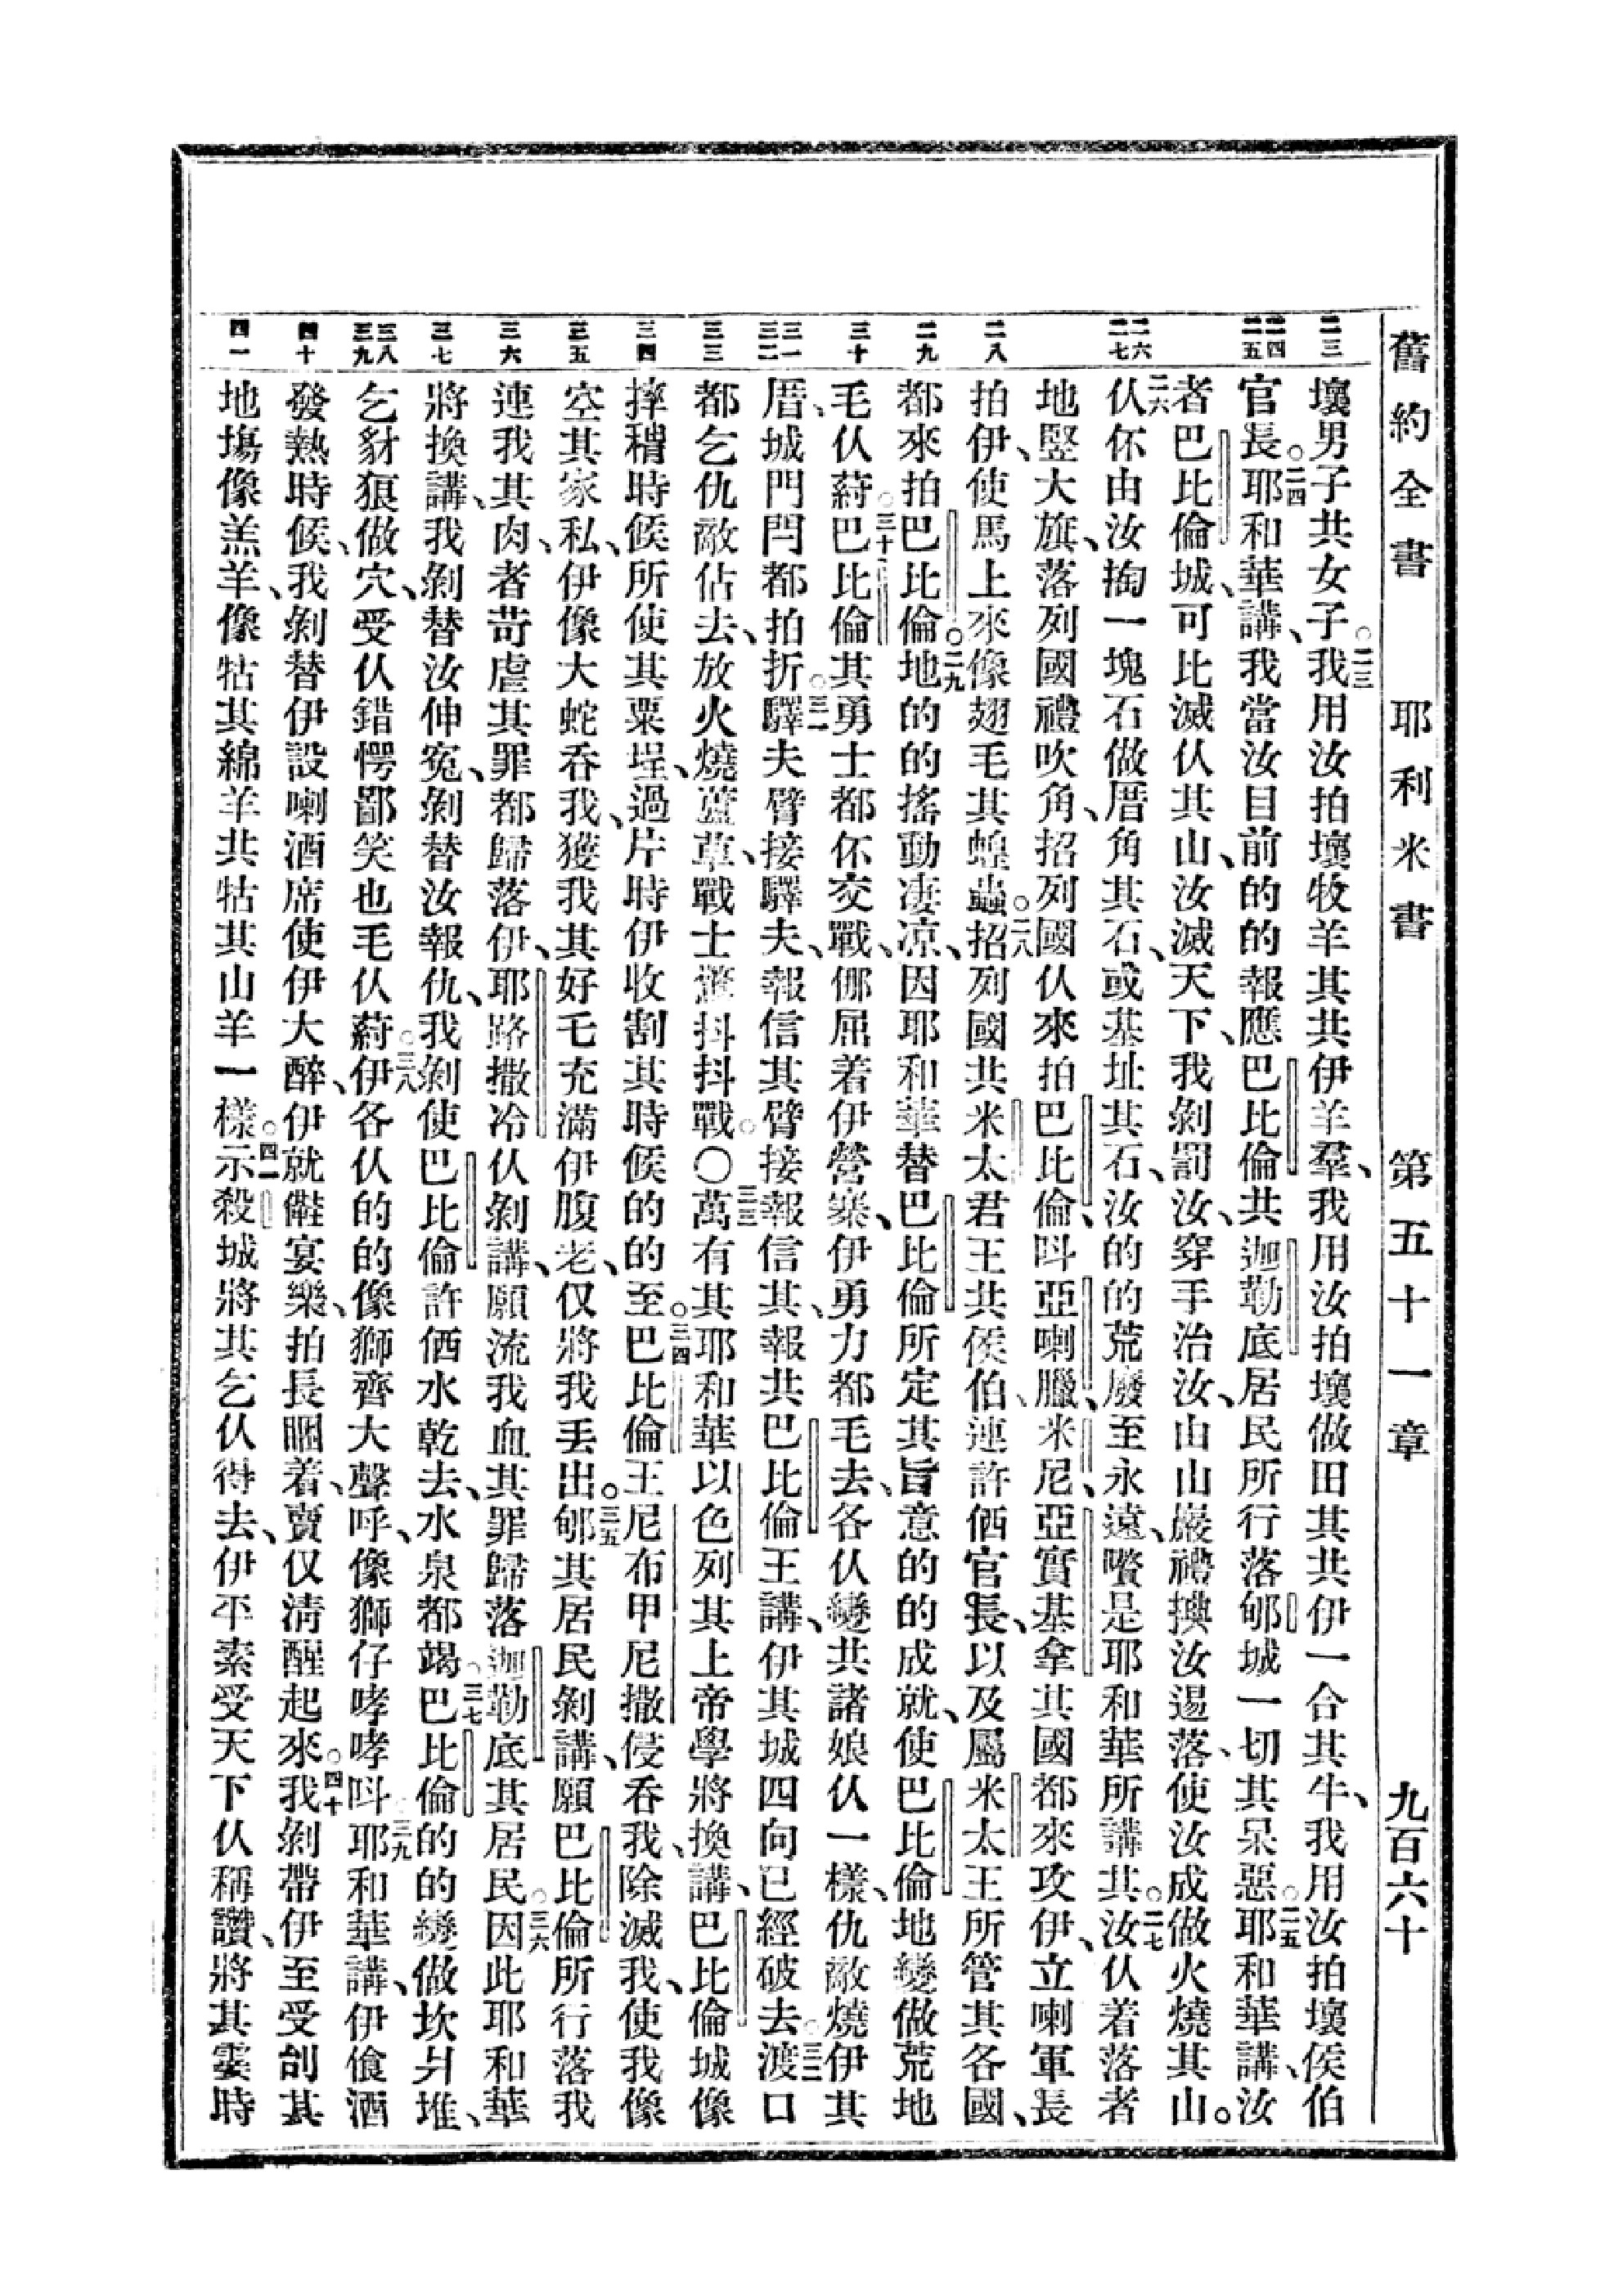 舊約全書 耶利米書 第五十一章 九百六十
二三 二四 二五 二六 二七 二八 二九 三十 三一 三二 三三 三四 三五 三六 三七 三八 三九 四十 四一
壞男子共女子。二三我用汝拍壞牧羊其共伊羊羣、我用汝拍壞做田其共伊一合其牛、我用汝拍壞侯伯
官長。二四耶和華講、我當汝目前的的報應巴比倫共迦勒底居民所行落郇城一切其呆惡。二五耶和華講、汝
者巴比倫城、可比滅仈其山、汝滅天下、我剝罰汝、穿手治汝、由山巖禮𢱤汝逿落、使汝成做火燒其山。
二六仈伓由汝掏一塊石做厝角其石、或基址其石、汝的的荒廢至永遠、嚽是耶和華所講其。二七汝仈着落者
地竪大旗、落列國禮吹角、招列國仈來拍巴比倫、呌亞喇臘米尼亞實基拿其國都來攻伊、立喇軍長
拍伊、使馬上來像翅毛其蝗蟲。二八招列國共米太君王共侯伯、連許㑚官長、以及屬米太王所管其各國、
都來拍巴比倫。二九地的的搖動凄凉、因耶和華替巴比倫所定其旨意的的成就、使巴比倫地變做荒地
毛仈薱。三十巴比倫其勇士都伓交戰、㑚屈着伊營寨、伊勇力都毛去、各仈變共諸娘仈一樣、仇敵燒伊其
厝、城門閂都拍折。三一驛夫臂接驛夫、報信其臂接報信其、報共巴比倫王講、伊其城四向已經破去。三二渡口
都乞仇敵佔去、放火燒蘆草、戰士驚抖抖戰。〇三三萬有其耶和華以色列其上帝學將換講、巴比倫城像
摔䆀時候所使其粟埕、過片時伊收割其時候的的至。三四巴比倫王尼布甲尼撒侵吞我、除滅我、使我像
空其家私、伊像大蛇吞我、獲我其好乇充滿伊腹老、仅將我丟出。三五郇其居民剝講、願巴比倫所行落我
連我其肉、者苛虐其罪都歸落伊、耶路撒冷仈剝講、願流我血其罪歸落迦勒底其居民。三六因此耶和華
將換講、我剝替汝伸寃、剝替汝報仇、我剝使巴比倫許㑚水乾去、水泉都竭。三七巴比倫的的變做坎爿堆、
乞豺狼做穴、受仈錯愕鄙笑也毛仈薱。三八伊各仈的的像獅齊大聲呼、像獅仔哮哮呌。三九耶和華講、伊飲酒
發熱時候、我剝替伊設喇酒席使伊大醉、伊就𩍪宴樂、拍長睏着、賣仅清醒起來。四十我剝帶伊至受刣其
地塲像羔羊、像牯其綿羊共牯其山羊一樣。四一示殺城將其乞仈得去、伊平素受天下仈稱讚、將其霎時